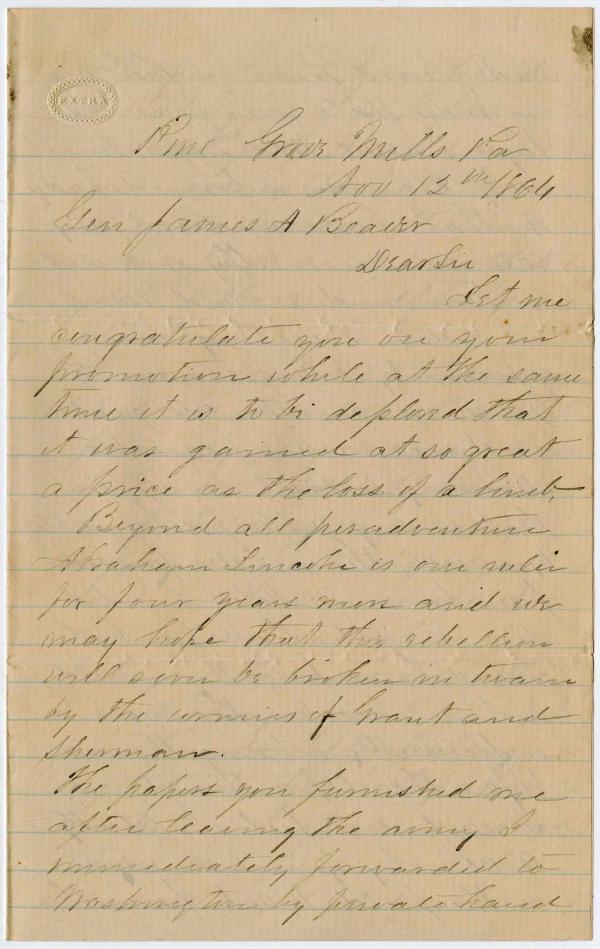 EXTRA
Pine Grove Mills Pa
Nov 12th/1864
Gen James A Beaver
Dear Sir
Let me
congratulate you on your
promotion while at the same
time it is to be deplored that
it was gained at so great
a price as the loss of a limb.
Beyond all peradventure
Abraham Lincoln is our ruler
for four years more and we
may hope that this rebellion
will soon be broken in twain
by the armies of Grant and
Sherman.
The papers you furnished me
after leaving the army I
immediately forwarded to
Washington by private hand